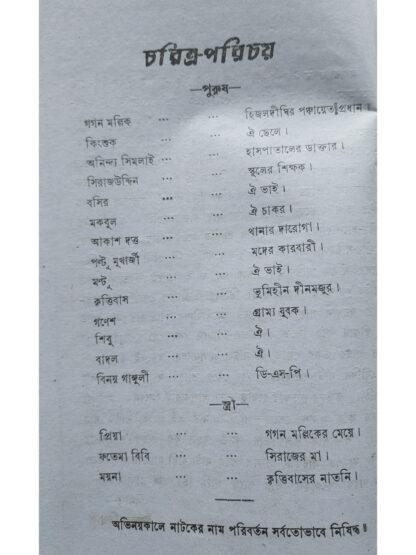 চরিত্র-পরিচয়
—পুরুষ—
গগন মল্লিক ... ... হিজলদীঘির পঞ্চায়েত প্রধান।
কিংশুক ... ... ঐ ছেলে।
অনিন্দ্য সিমলাই ... ... হাসপাতালের ডাক্তার।
সিরাজউদ্দিন ... ... স্কুলের শিক্ষক।
বসির ... ... ঐ ভাই।
মকবুল ... ... ঐ চাকর।
আকাশ দত্ত ... ... থানার দারোগা।
পল্টু মুখার্জী ... ... মদের কারবারী।
মন্টু ... ... ঐ ভাই।
কৃত্তিবাস ... ... ভূমিহীন দীনমজুর।
গণেশ ... ... গ্রাম্য যুবক।
শিবু ... ... ঐ।
বাদল ... ... ঐ।
বিনয় গাঙ্গুলী ... ... ডি-এস-পি।
—স্ত্রী—
প্রিয়া ... ... গগন মল্লিকের মেয়ে।
ফতেমা বিবি ... ... সিরাজের মা।
ময়না ... ... কৃত্তিবাসের নাতনি।
অভিনয়কালে নাটকের নাম পরিবর্তন সর্বতোভাবে নিষিদ্ধ॥